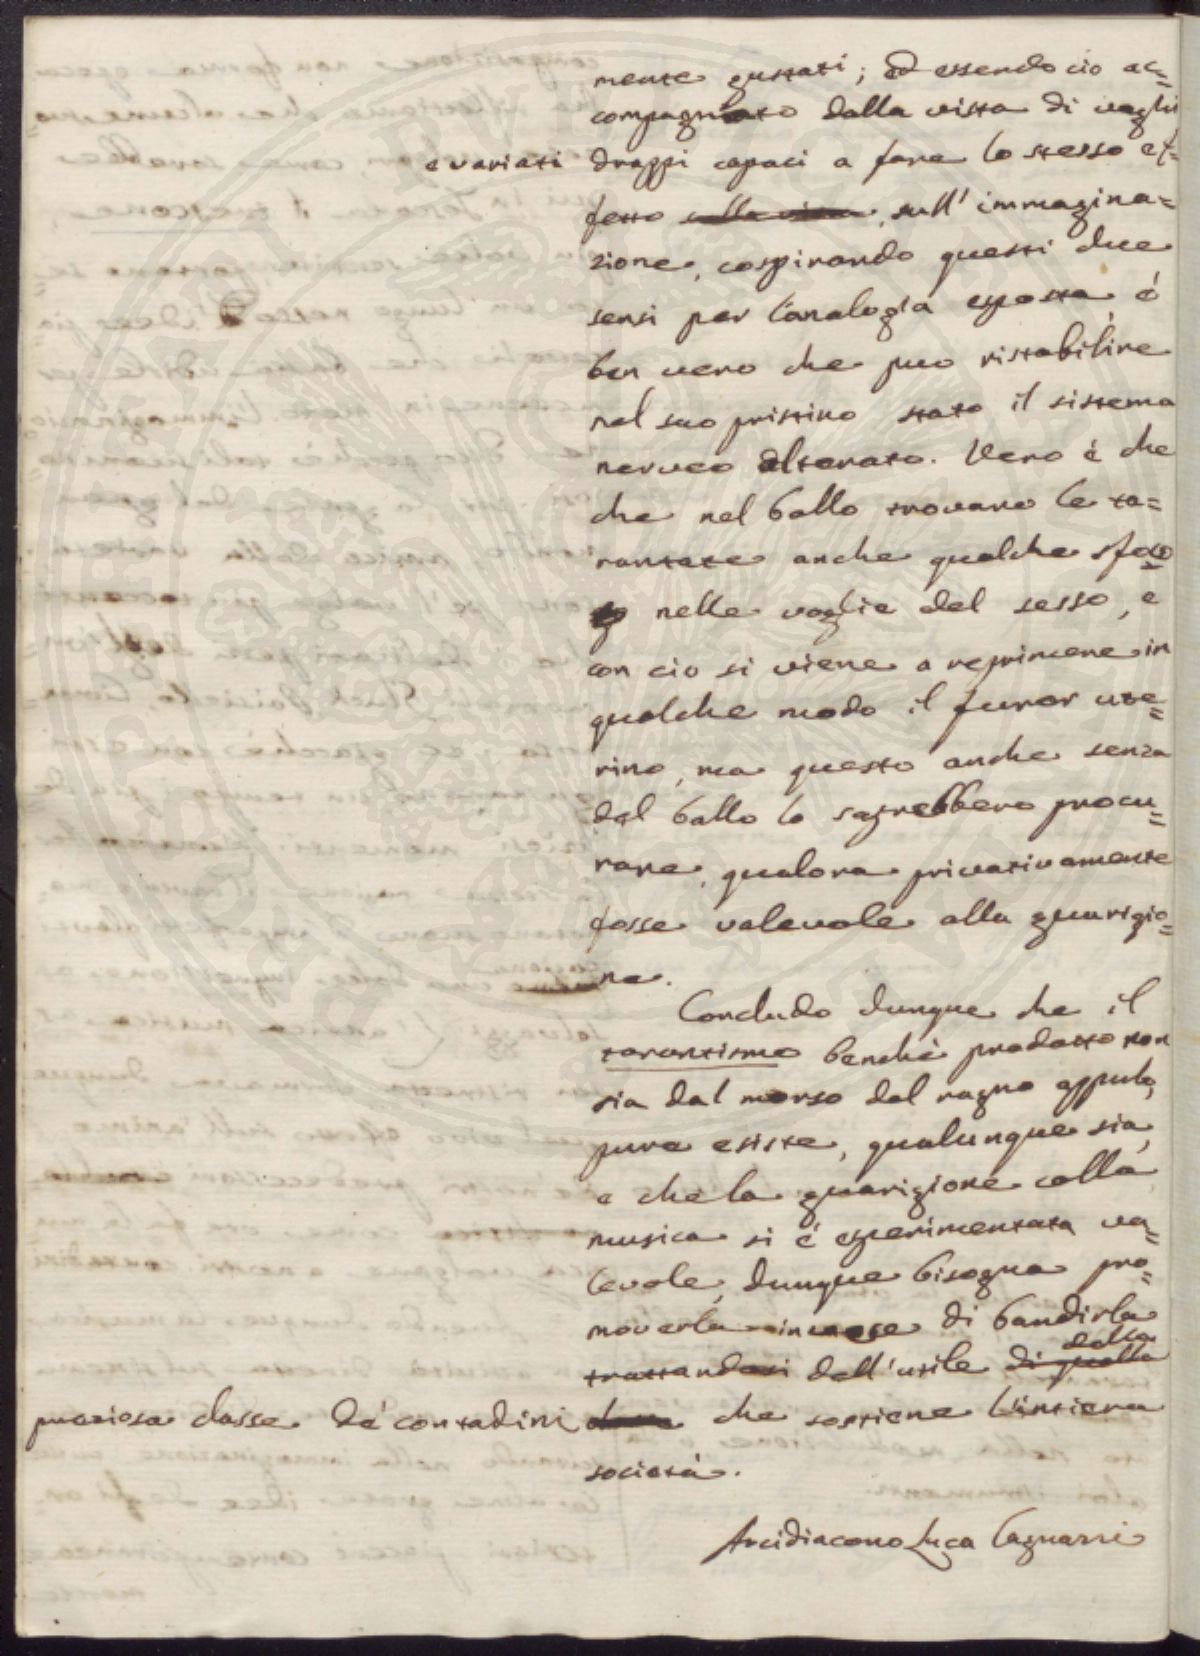 mente gustati; ed essendo cio ac=
compagnato dalla vista di vaghi
e variati drappi capaci a fare lo stesso ef=
fetto sulla vista, sull' immagina=
zione, cospirando questi due
sensi per l'analogia esposta, é
ben vero che puo ristabilire
nel suo pristino stato il sistema
nerveo alterato. Vero é che
che nel ballo trovano le ta=
rantate anche qualche sfogo
nelle voglie del sesso, e
con cio si viene a reprimere in
qualche modo il furor ute=
rino, ma questo anche senza
del ballo lo saprebbero procu=
rare, qualora privativamente
fosse valevole alla guarigio=
ne.
Concludo dunque che il
tarantismo benchè prodotto non
sia dal morso del ragno appulo,
pure esiste, qualunque sia,
e che la guarigione colla
musica si é esperimentata va=
levole, dunque bisogna pro=
moverla invece di bandirla
trattandosi dell'utile di quella della
preziosa classe de' contadini che sostiene l'intiera
società.
Arcidiacono Luca Cagnazzi